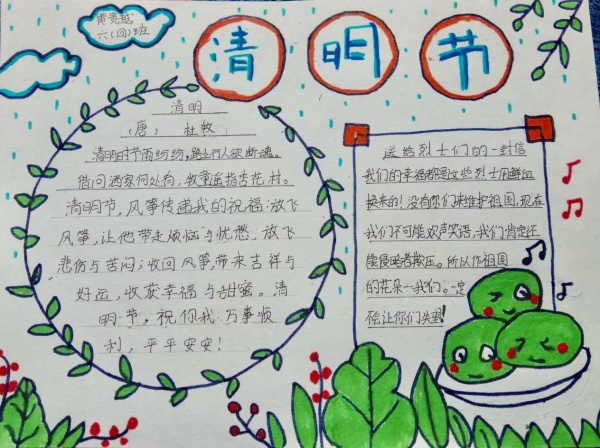 六(四)班
清明节
清明
(唐) 杜牧
清明时节雨纷纷,路上行人欲断魂。
借问酒家何处有,牧童遥指杏花村。
清明节,风筝传递我的祝福:放飞
风筝,让他带走烦恼与忧愁,放飞
悲伤与苦闷;收回风筝,带来吉祥与
好运,收获幸福与甜蜜。清
明节,祝你我万事顺
利,平平安安!
送给烈士们的一封信
我们的幸福都是这些烈士用鲜血
换来的!没有你们来维护祖国,现在
我们不可能欢声笑语,我们肯定还
被侵略者欺压。所以作祖国
的花朵—我们。一定
不会让你们失望!